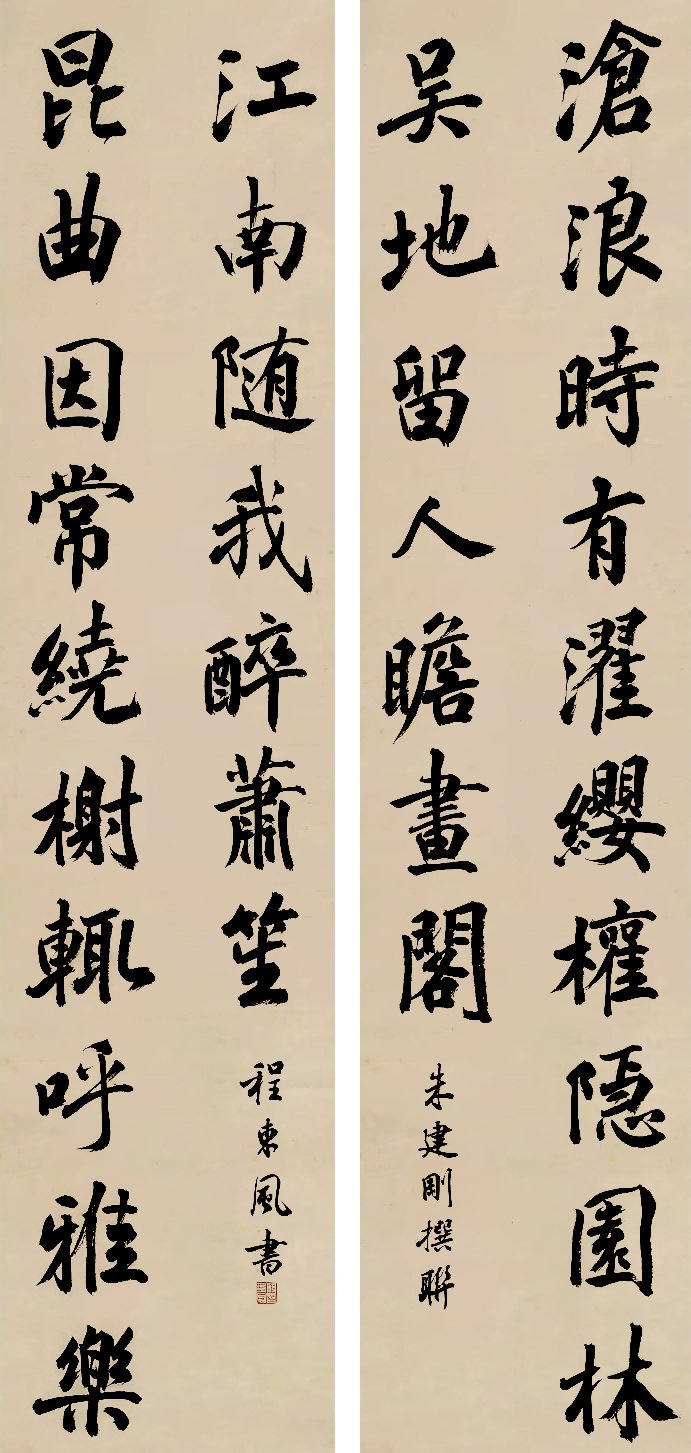 滄浪時有濯纓權隱園林
吴地留人瞻畫閣
朱建剛撰聯
昆曲因常繞榭輒呼雅樂
江南随我醉蕭笙
程東風書